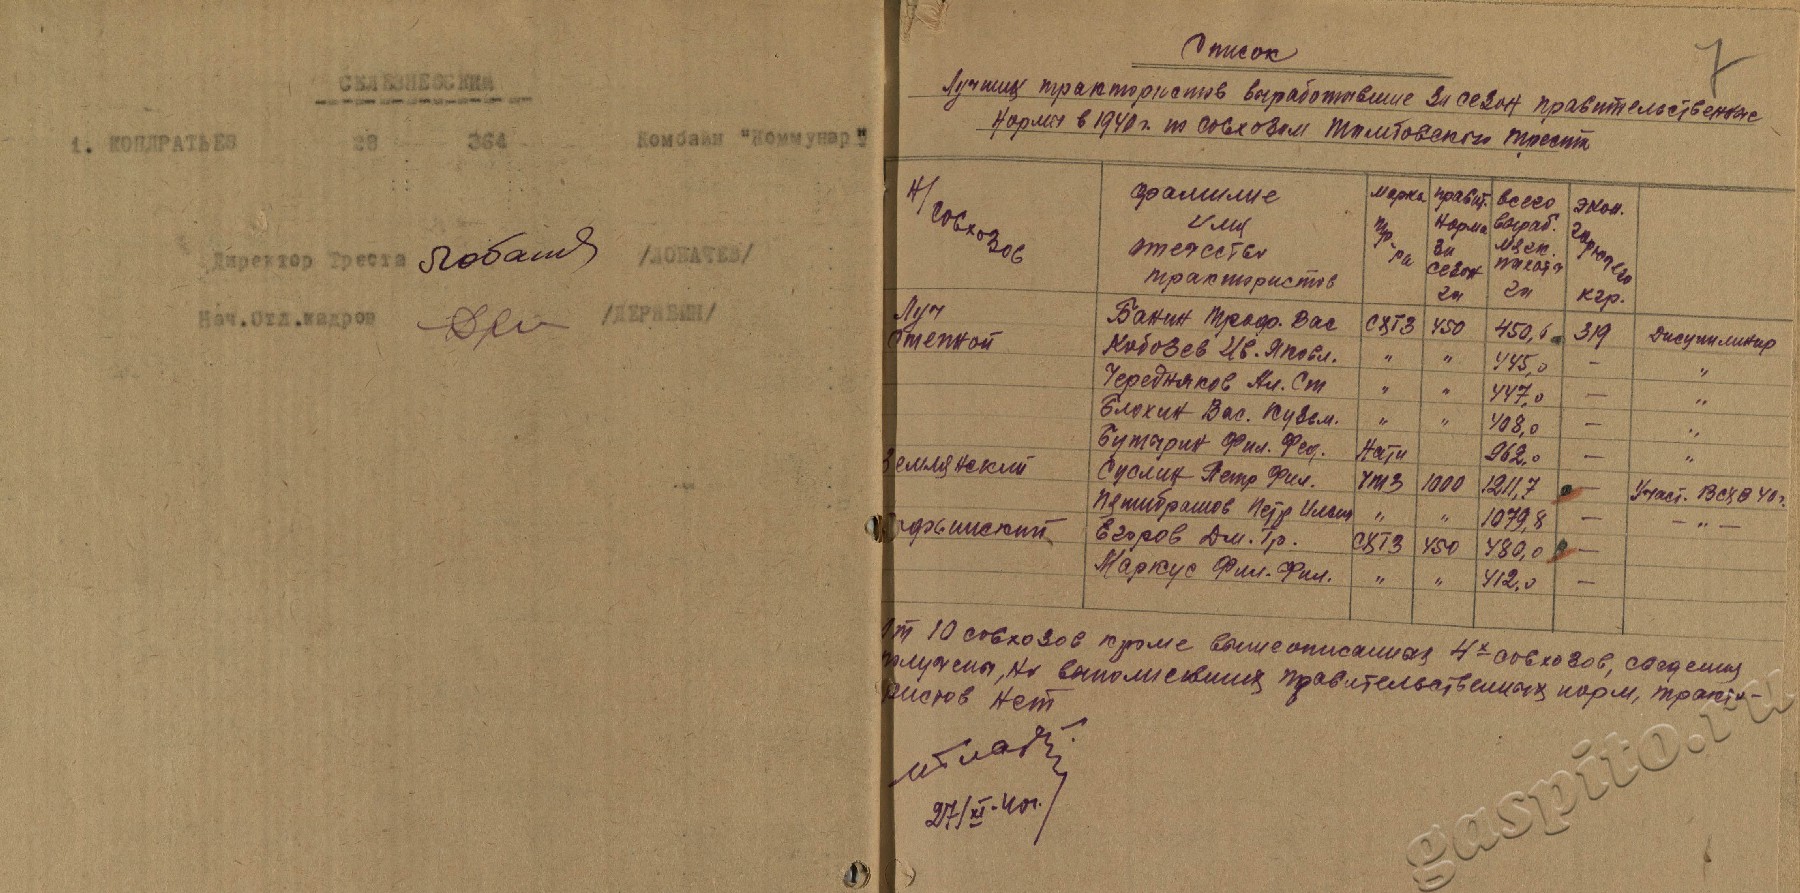 СЕЛЕЗНЕВСКИЙ
1. КОНДРАТЬЕВ 28 364 Комбайн "Коммунар"
Директор Треста /ЛОБАЧЕВ/
Нач.Отд.кадров /ДЕРЯБИН/
7
Список
Лучших трактористов выработавшие за сезон правительственные
нормы в 1940 г. по совхозам Тамбовского треста
Н/совхозов
Фамилие Имя отчество трактористов
Марка тр-ра
правит. норма за сезон га
всего выраб. мягк. пахоты га
экон. горючего кгр.
Луч Банин Троф. Вас СХТЗ 450 450,6 319 Дисциплинир
Степной Кобозев Ив. Яковл. " " 445,0 — "
Чередняков Ал. Ст " " 447,0 — "
Блохин Вас. Кузьм. " " 408,0 — "
Бутырин Фил. Фед. Нати 962,0 — "
Землянский Суслин Петр Фил. ЧТЗ 1000 1211,7 — Участ. ВСХВ 40 г.
Петр Ильич " " 1079,8 — — " —
Егоров Дм. Гр. СХТЗ 450 480,0 —
Маркус Фил. Фил. " " 412,0 —
От 10 совхозов кроме вышеописанных 4х совхозов, сведения
получены, но выполнивших правительственных норм, тракто-
ристов нет
27/XI-40г.
gaspito.ru